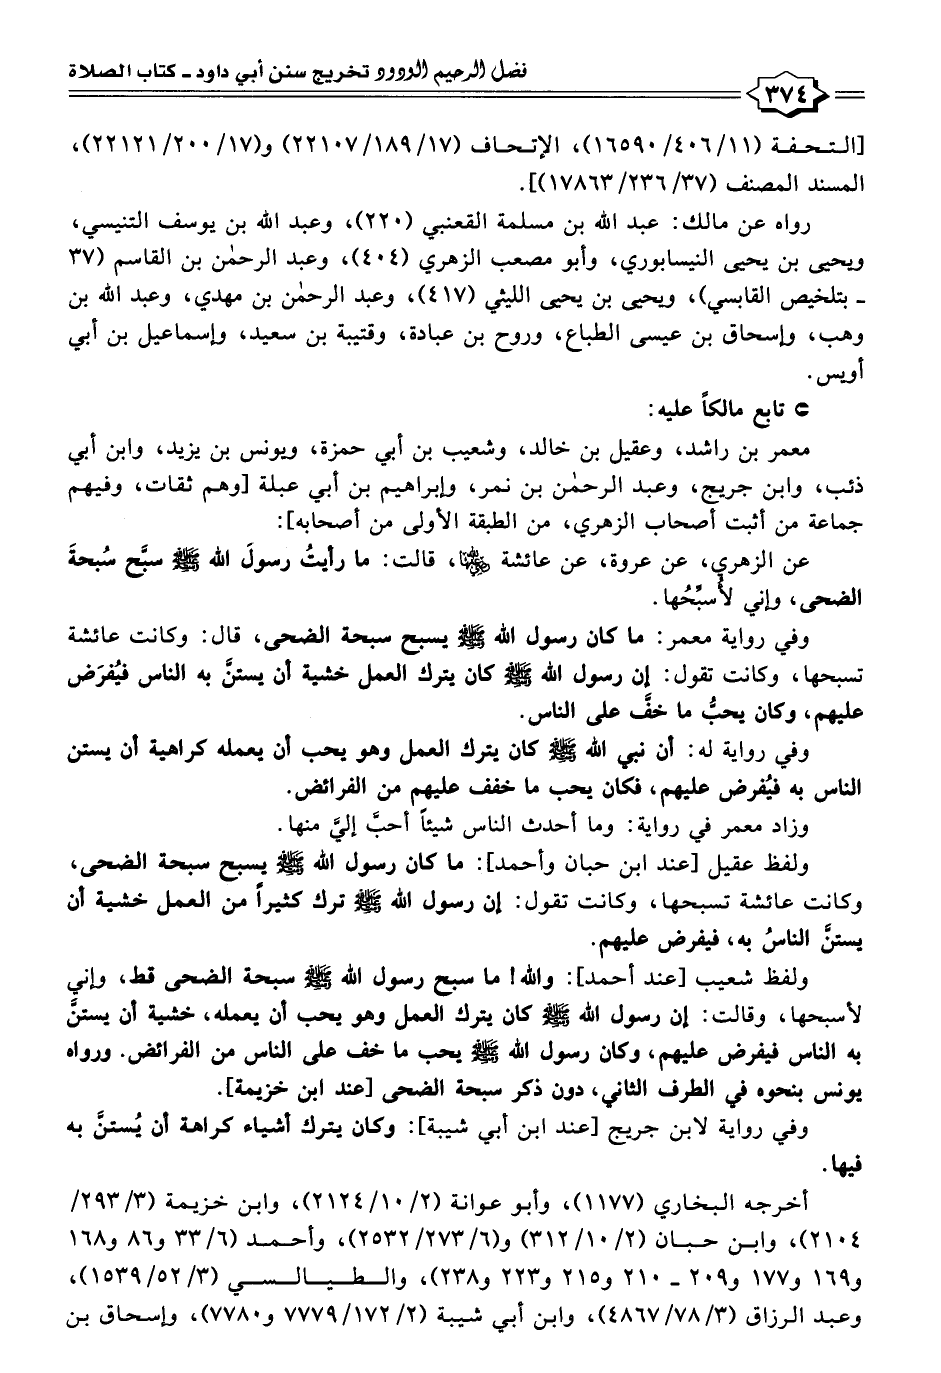 فضل الرحيم الودود تخريج سنن أبي داود ـ كتاب الصلاة
٣٧٤
[التحفة (١١/٤٠٦/١٦٥٩٠)، الإتحاف (١٧/١٨٩/٢٢١٠٧) و(١٧/٢٠٠/٢٢١٢١)،
المسند المصنف (٣٧/٢٣٦/١٧٨٦٣)].
رواه عن مالك: عبد الله بن مسلمة القعنبي (٢٢٠)، وعبد الله بن يوسف التنيسي،
ويحيى بن يحيى النيسابوري، وأبو مصعب الزهري (٤٠٤)، وعبد الرحمٰن بن القاسم (٣٧
ـ بتلخيص القابسي)، ويحيى بن يحيى الليثي (٤١٧)، وعبد الرحمٰن بن مهدي، وعبد الله بن
وهب، وإسحاق بن عيسى الطباع، وروح بن عبادة، وقتيبة بن سعيد، وإسماعيل بن أبي
أويس.
تابع مالكاً عليه:
معمر بن راشد، وعقيل بن خالد، وشعيب بن أبي حمزة، ويونس بن يزيد، وابن أبي
ذئب، وابن جريج، وعبد الرحمٰن بن نمر، وإبراهيم بن أبي عبلة [وهم ثقات، وفيهم
جماعة من أثبت أصحاب الزهري، من الطبقة الأولى من أصحابه]:
عن الزهري، عن عروة، عن عائشة رضي الله عنها، قالت: ما رأيتُ رسولَ الله ﷺ سبَّح سُبحةَ
الضحى، وإني لأُسبِّحُها.
وفي رواية معمر: ما كان رسول الله ﷺ يسبح سبحة الضحى، قال: وكانت عائشة
تسبحها، وكانت تقول: إن رسول الله ﷺ كان يترك العمل خشية أن يستنَّ به الناس فيُفرَض
عليهم، وكان يحبُّ ما خفَّ على الناس.
وفي رواية له: أن نبي الله ﷺ كان يترك العمل وهو يحب أن يعمله كراهية أن يستن
الناس به فيُفرض عليهم، فكان يحب ما خفف عليهم من الفرائض.
وزاد معمر في رواية: وما أحدث الناس شيئاً أحبَّ إليَّ منها.
ولفظ عقيل [عند ابن حبان وأحمد]: ما كان رسول الله ﷺ يسبح سبحة الضحى،
وكانت عائشة تسبحها، وكانت تقول: إن رسول الله ﷺ ترك كثيراً من العمل خشية أن
يستنَّ الناسُ به، فيفرض عليهم.
ولفظ شعيب [عند أحمد]: والله! ما سبح رسول الله ﷺ سبحة الضحى قط، وإني
لأسبحها، وقالت: إن رسول الله ﷺ كان يترك العمل وهو يحب أن يعمله، خشية أن يستنَّ
به الناس فيفرض عليهم، وكان رسول الله ﷺ يحب ما خف على الناس من الفرائض. ورواه
يونس بنحوه في الطرف الثاني، دون ذكر سبحة الضحى [عند ابن خزيمة].
وفي رواية لابن جريج [عند ابن أبي شيبة]: وكان يترك أشياء كراهة أن يُستنَّ به
فيها.
أخرجه البخاري (١١٧٧)، وأبو عوانة (٢/١٠/٢١٢٤)، وابن خزيمة (٣/٢٩٣/
٢١٠٤)، وابن حبان (٢/١٠/٣١٢) و(٦/٢٧٣/٢٥٣٢)، وأحمد (٦/٣٣ و٨٦ و١٦٨
و١٦٩ و١٧٧ و٢٠٩ ـ ٢١٠ و٢١٥ و٢٢٣ و٢٣٨)، والطيالسي (٣/٥٢/١٥٣٩)،
وعبد الرزاق (٣/٧٨/٤٨٦٧)، وابن أبي شيبة (٢/١٧٢/٧٧٧٩ و٧٧٨٠)، وإسحاق بن